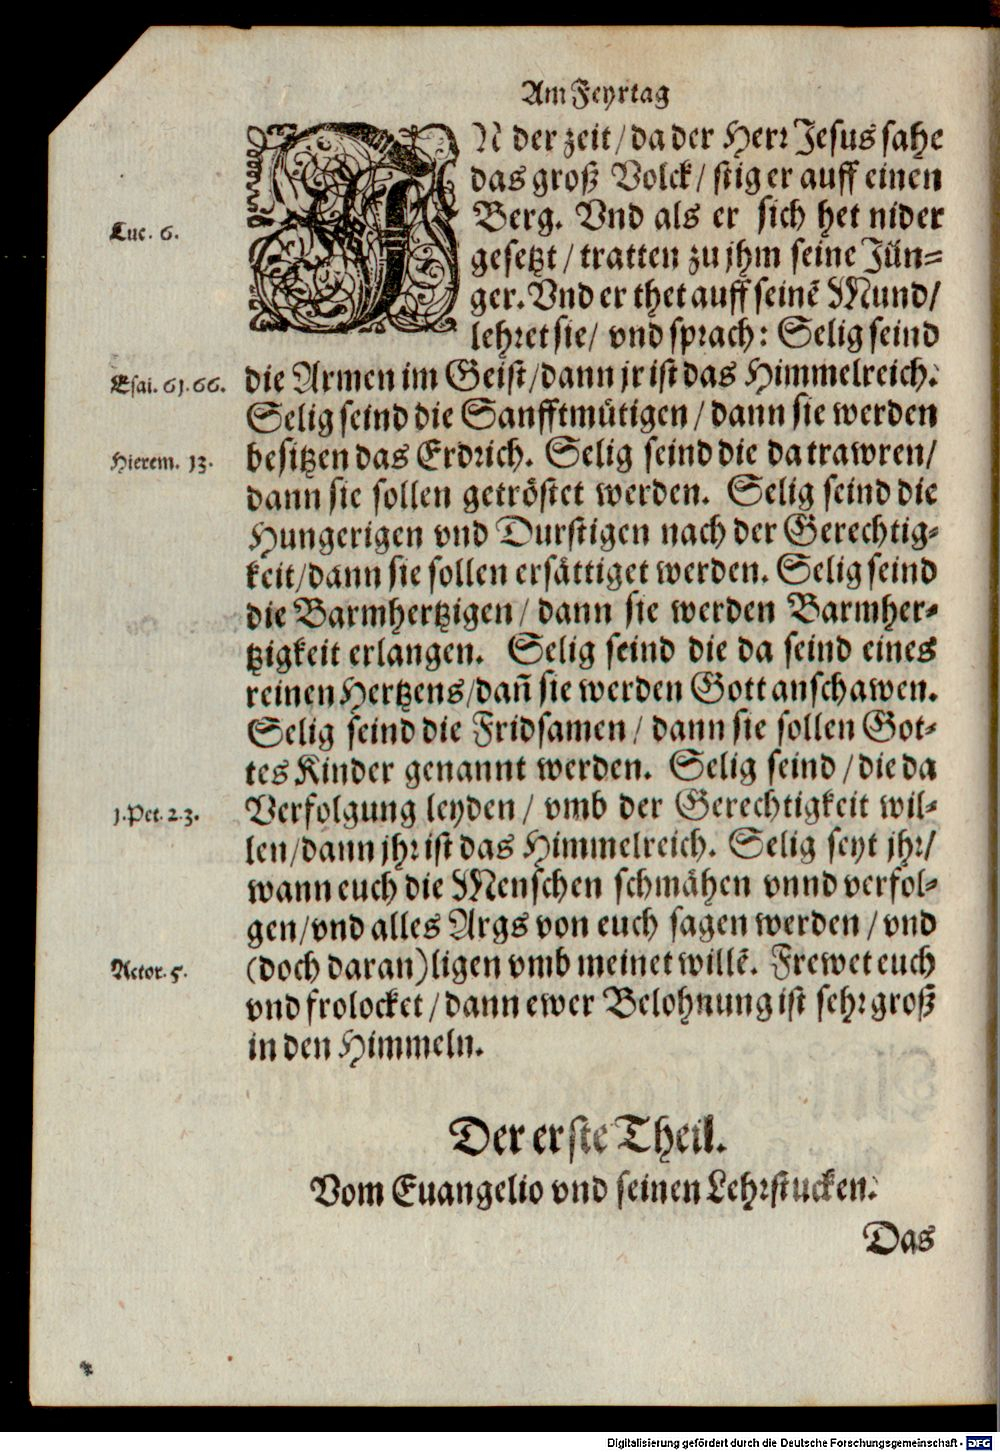 Am Feyrtag
IN der zeit/ da der Herr Jesus sahe
das groß Volck/ stig er auff einen
Luc. 6.
Berg. Vnd als er sich het nider
gesetzt/ tratten zu jhm seine Jün-
ger. Vnd er thet auff seinē Mund/
lehret sie/ vnd sprach: Selig seind
Esai. 61. 66.
die Armen im Geist/ dann jr ist das Himmelreich.
Selig seind die Sanfftmütigen/ dann sie werden
Hierem. 13.
besitzen das Erdrich. Selig seind die da trawren/
dann sie sollen getröstet werden. Selig seind die
Hungerigen vnd Durstigen nach der Gerechtig-
keit/ dann sie sollen ersättiget werden. Selig seind
die Barmhertzigen/ dann sie werden Barmher-
tzigkeit erlangen. Selig seind die da seind eines
reinen Hertzens/ dañ sie werden Gott anschawen.
Selig seind die Fridsamen/ dann sie sollen Got-
tes Kinder genannt werden. Selig seind/ die da
1. Pet. 2. 3.
Verfolgung leyden/ vmb der Gerechtigkeit wil-
len/ dann jhr ist das Himmelreich. Selig seyt jhr/
wann euch die Menschen schmähen vnnd verfol-
gen/ vnd alles Args von euch sagen werden/ vnd
Actor. 5.
(doch daran) ligen vmb meinet willē. Frewet euch
vnd frolocket/ dann ewer Belohnung ist sehr groß
in den Himmeln.
Der erste Theil.
Vom Euangelio vnd seinen Lehrstucken.
Das
Digitalisierung gefördert durch die Deutsche Forschungsgemeinschaft - DFG